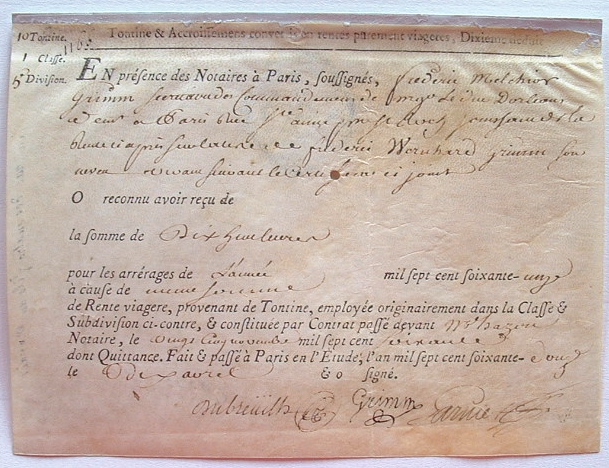 10 Tontine. Tontine & Accroissemens convertis en rentes purement viageres, Dixieme déduit
1 Classe. 1165
5e Division. EN présence des Notaires à Paris, soussignés, frédéric Melchior
Grimm Secretaire des Commandemens de mgr le duc Dorleans
a Paris Rue Ste anne St Roch jouissant de la
Rente ci après sur la teste de frédéric Grimm son
neveu vivant suivant le Certificat ci joint
O reconnu avoir reçu de
la somme de Dix huit livres
pour les arrérages de L'année mil sept cent soixante-onze
à cause de même somme
de Rente viagere, provenant de Tontine, employée originairement dans la Classe &
Subdivision ci-contre, & constituée par Contrat passé devant Me hazon
Notaire, le vingt cinq novembre mil sept cent soixante
dont Quittance. Fait & passé à Paris en l'Etude, l'an mil sept cent soixante-douze
le dix avril & o signé.
Grimm